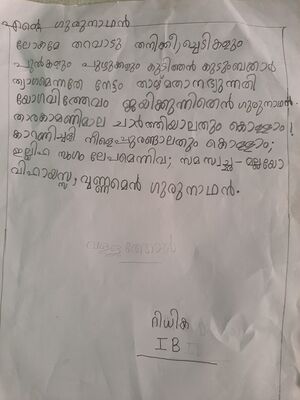 എന്റെ ഗുരുനാഥൻ
ലോകമേ തറവാടു തനിക്കീ,ച്ചെടികളും
പുൽകളും പുഴുക്കളും കൂടിത്തൻ കുടുംബക്കാർ
ത്യാഗമെന്നതേ നേട്ടം താഴ്മതാനഭ്യുന്നതി
യോഗവിത്തേവം ജയിക്കുന്നിതെൻ ഗുരുനാഥൻ
താരകാമണിമാല ചാർത്തിയാലതും കൊള്ളാം!
കാറണിച്ചളി നീളെപ്പുരണ്ടാലതും കൊള്ളാം;
ഇല്ലിഹ സംഗം ലേപമെന്നിവ; സമസ്വച്ഛ-മല്ലയോ
വിഹായസ്സ,വ്വണ്ണമെൻ ഗുരുനാഥൻ.
വള്ളത്തോൾ
റിധിക
I B